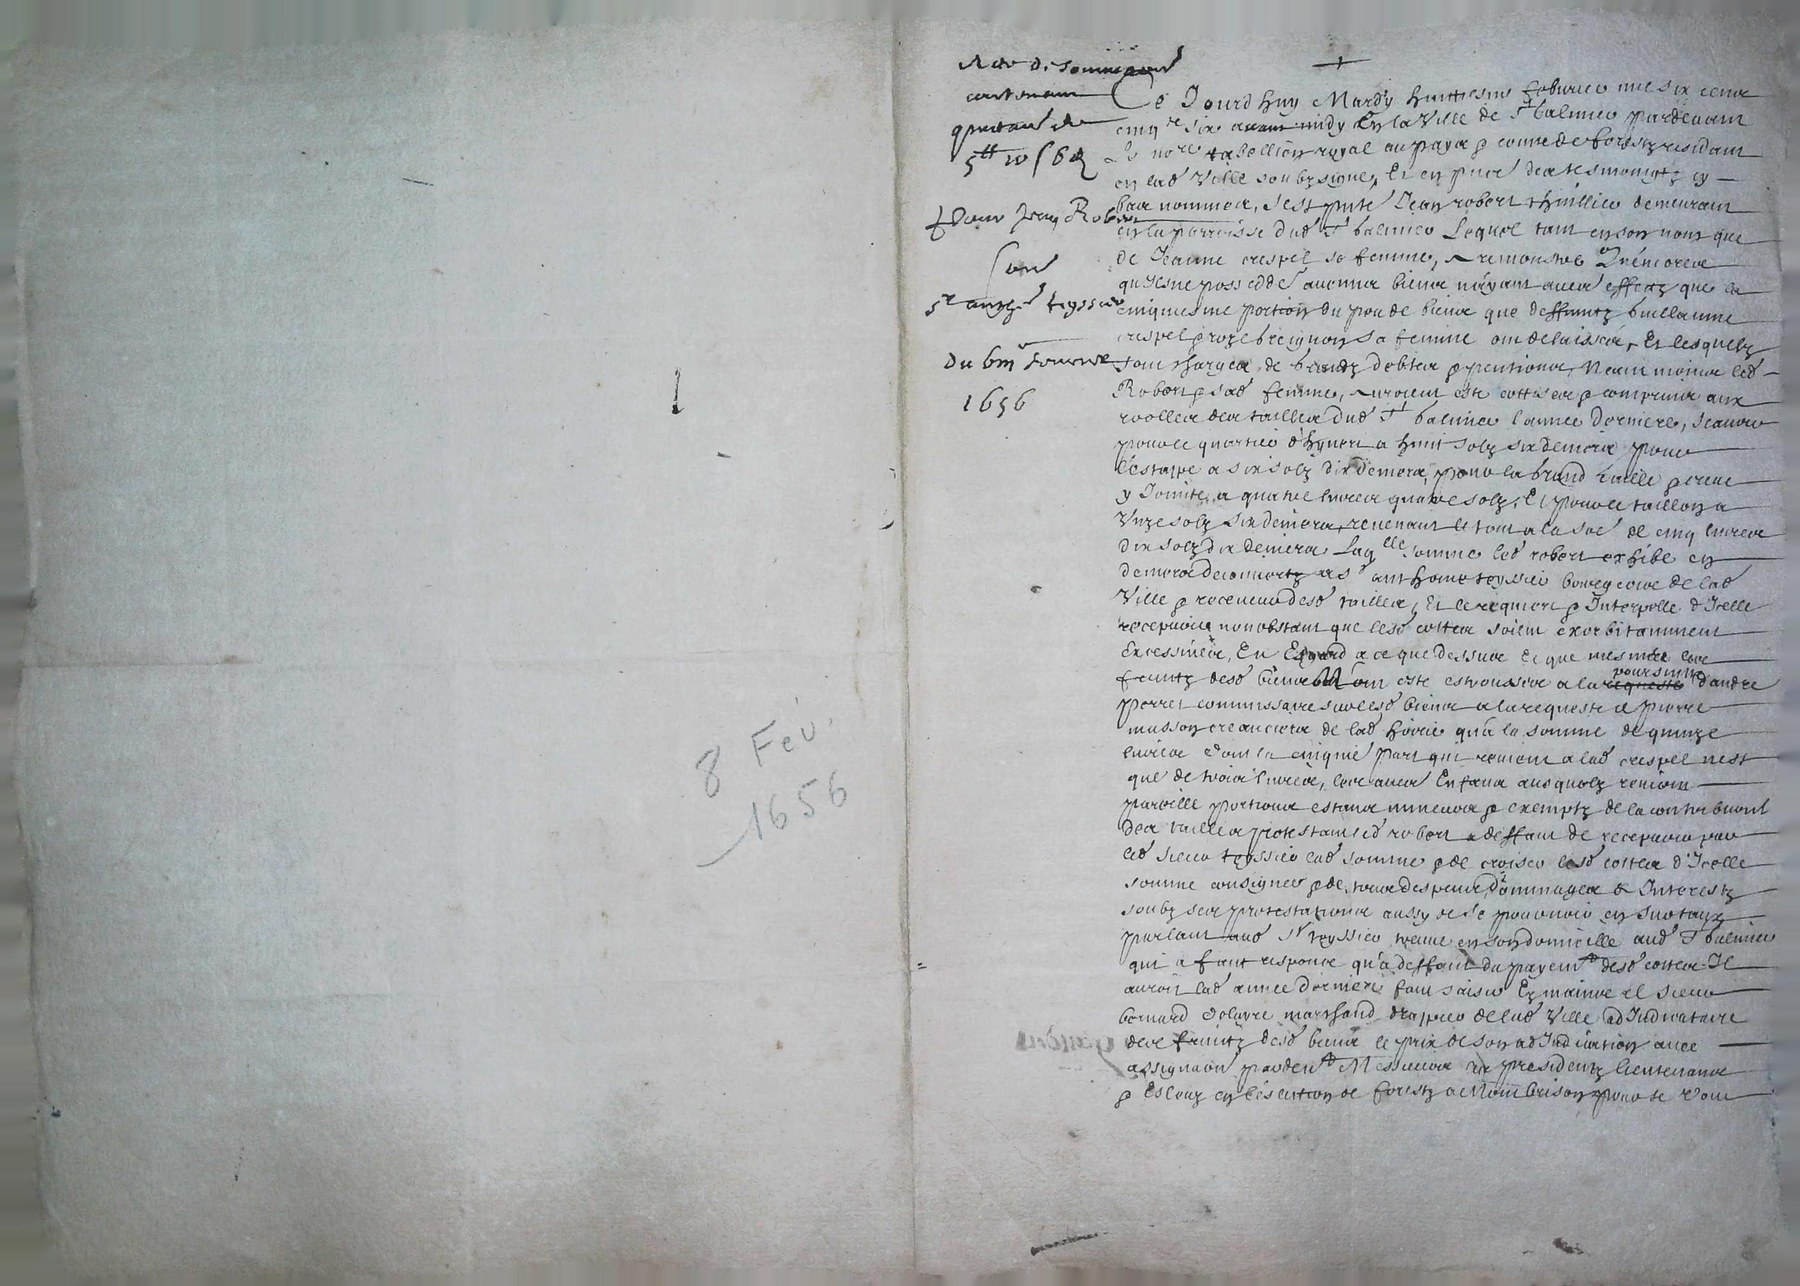 8 Fév.
1656
Acte de
quittance de
5tt 10s 6d
pour Jean Robert
Contre
Sr anthe teyssier
Du 8me feurier
1656
+
Ce Jourd'huy Mardy huittiesme feburier mil six cens
cinqte six auant midy En la Ville de St Galmier pardeuant
Le nore tabellion royal au pays & comté de forestz residant
en lad Ville soubzsigné, Et en pnce des tesmoingtz cy
bas nommés, s'est pnté Jean robert thuillier demeurant
en la parroisse dud St Galmier Lequel tant en son nom que
de Jeanne crespel sa femme, a remonstré
qu'Il ne possedde aucuns biens n'ayant autres effectz que la
cinquiesme portion du peu de biens que deffunctz Guillaume
crespel & sa femme ont delaissés, Et lesquelz
sont chargés de grandz debtes & pentions, Neantmoings led
Robert & sad femme, auroient esté cottisés & comprins aux
roolles des tailles dud St Galmier l'année derniere, scauoir
pour le quartier d'hyuert a huit solz six deniers pour
l'estappe a six solz dix deniers, pour la Grand taille & creue
y Jointe, a quatre liures quatre solz, Et pour le taillon a
Unze solz six deniers, reuenant le tout a la soe de cinq liures
dix solz dix deniers Laqlle somme led robert exhibe en
deniers descouuertz a Sr anthoine teyssier bourgeois de lad
Ville & receueur desd tailles, Et le requiert & Interpelle d'Icelle
receuoir nonobstant que lesd cottes soient exorbitamment
Excessiues, Eu Esgard a ce que dessus Et que mesmes les
fruictz desd biens n'ont esté estroussés a la requeste poursuitte d'andré
perret commissaire sur lesd biens a la requeste de pierre
musson creancier de lad hoirie qu'a la somme de quinze
liures dont la cinquie part qui reuient a lad crespel n'est
que de trois liures, les autres Enfans ausquelz reuient
pareille portions estans mineurs & exemptz de la contribution
des tailles protestant led robert a deffaut de receuoir par
led sieur teyssier lad somme & de croiser lesd cottes d'Icelle
somme consignée & de tous despens, dommages & Interestz
soubz ses protestations aussy de se pouruoir en surtaux
parlant aud Sr teyssier treuué en son domicille aud St Galmier
qui a faict responce qu'a deffaut du payemt desd cottes Il
auroit lad année derniere faict saisir Ez mains de sieur
bernard marchand drappier de lad Ville adJudicataire
des fruictz desd biens le prix de son adJudication auec
assignaon pardeut Messieurs les presidentz lieutenans
& Esleuz en l'eslection de forestz a Montbrison pour se Voir